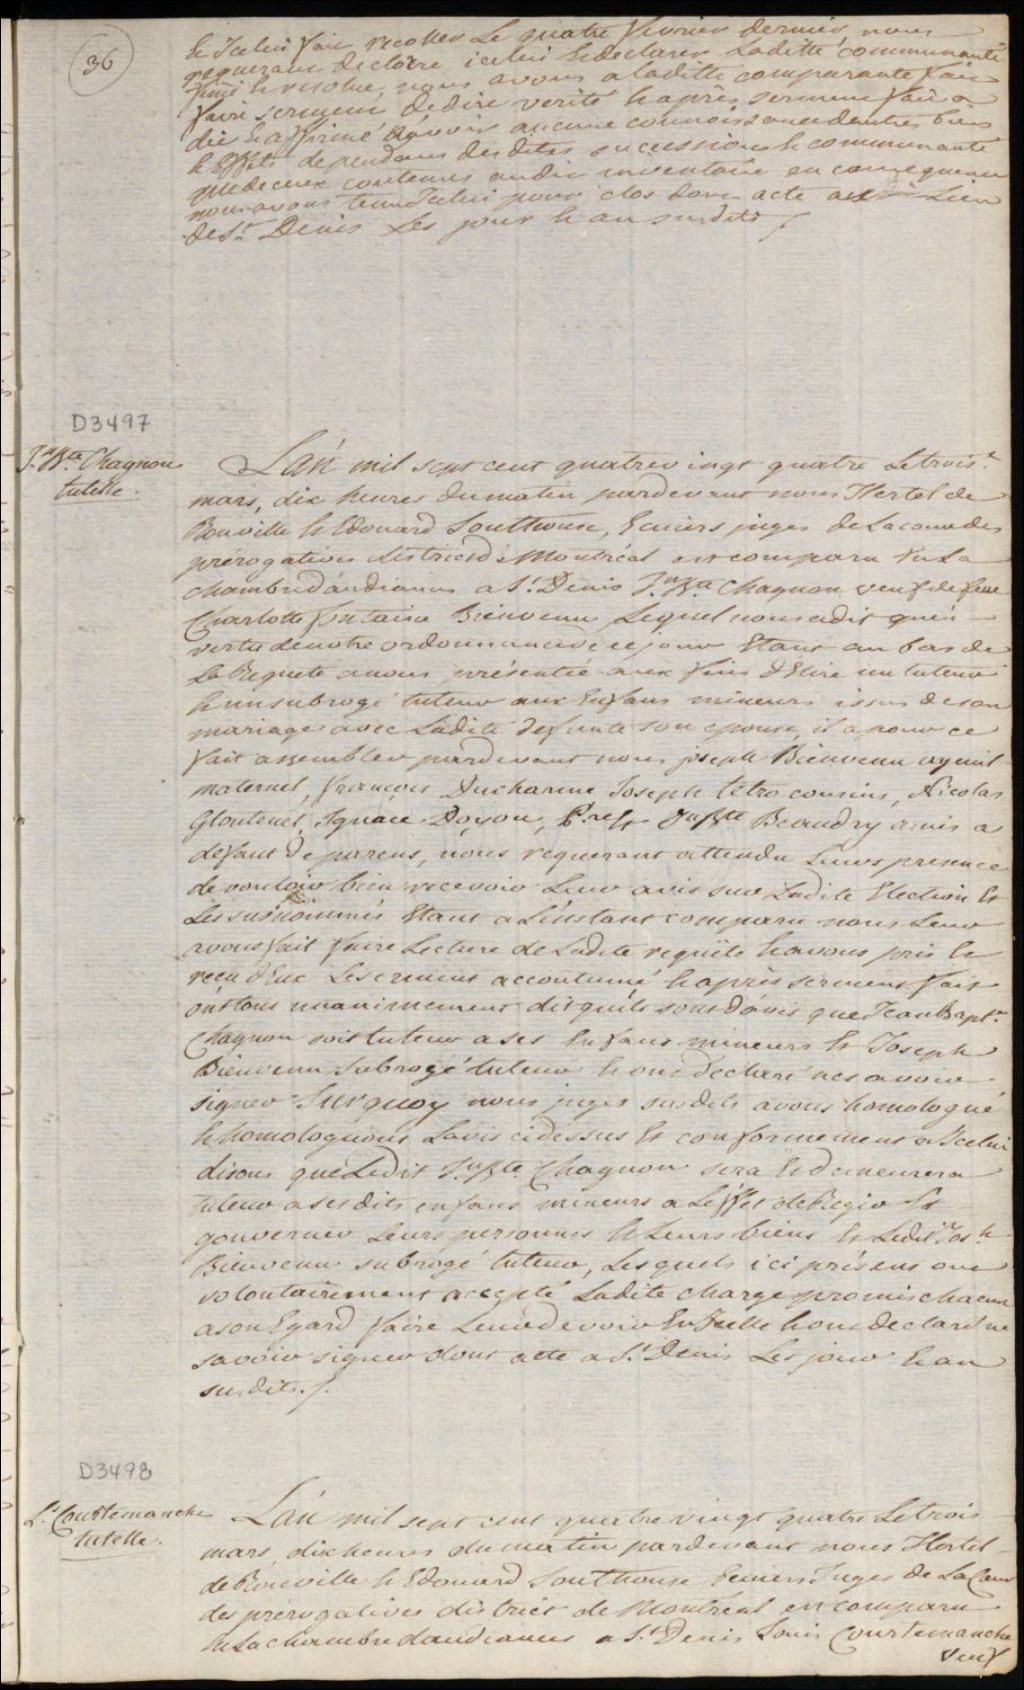 36
Et Icelui fait recoller Le quatre fevrier dernier, nous
requerant declore icelui Et declarer Laditte communauté
finie Et resolue, nous avons a laditte comparante fait
faire serment de dire verité Et après serment fait a
dit Et affirmé n'avoir aucune connoissance dautres biens
Et Effets dependans des dites successions Et communauté
que de ceux contenus audit inventaire en consequence
nous avons tenu Icelui pour clos dont acte a
de St. Denis Les jour Et an susdits
D3497
Jn. Bte. Chagnon
tutelle.
L'an mil sept cent quatre vingt quatre Le trois
mars, dix heures du matin pardevant nous Hertel de
Rouville Et Edouard Southouse, Ecuiers juges de La cour des
prérogatives district de Montréal est comparu En La
chambre d'audiances a St. Denis Jn. Bte. Chagnon veuf de feue
Charlotte fontaine Bienvenu Lequel nous a dit qu'en
vertu de notre ordonnance de ce jour Etant au bas de
La Requete a nous présentée aux fins d'Elire un tuteur
Et un subrogé tuteur aux Enfans mineurs issus de son
mariage avec Ladite defunte son epouse, il a pour ce
fait assembler pardevant nous joseph Bienvenu ayeul
maternel, françois Ducharme Joseph tetro cousins, Nicolas
Gloutenet, Ignace Doyon, Jn Bte Beaudry amis a
defaut de parens, nous requerant attendu Leurs presence
de vouloir bien recevoir Leur avis sur Ladite Election Et
Les susnommés Etant a L'instant comparu nous Leur
avons fait faire Lecture de Ladite requête Et avons pris Et
reçu d'Eux Le serment accoutumé Et après serment fait
ont tous unanimement dit qu'ils sont d'avis que Jean Bapte.
Chagnon soit tuteur a ses Enfans mineurs Et Joseph
Bienvenu Subrogé tuteur Et ont declaré ne savoir
signer Surquoy nous juges susdits avons homologué
Et homologuons L'avis cidessus Et conformement a Icelui
disons que Ledit Jn. Bte. Chagnon sera Et demeurera
tuteur a ses dits enfans mineurs a L'effet de Regir Et
gouverner Leurs personnes Et Leurs biens Et Ledit Josh
Bienvenu subrogé tuteur, Lesquels ici présens ont
volontairement accepté Ladite charge promis chacun
a son Egard faire Leur devoir En Icelle Et ont declaré ne
savoir signer dont acte a St. Denis Les jour Et an
susdits ./.
D3498
Ls. Courtemanche
tutelle.
L'an mil sept cent quatre vingt quatre Le trois
mars, dix heures du matin pardevant nous Hertel
de Rouville Et Edouard Southouse Ecuiers Juges de La Cour
des prérogatives district de Montréal est comparu
En La chambre daudiances a St. Denis Louis Courtemanche
Veuf